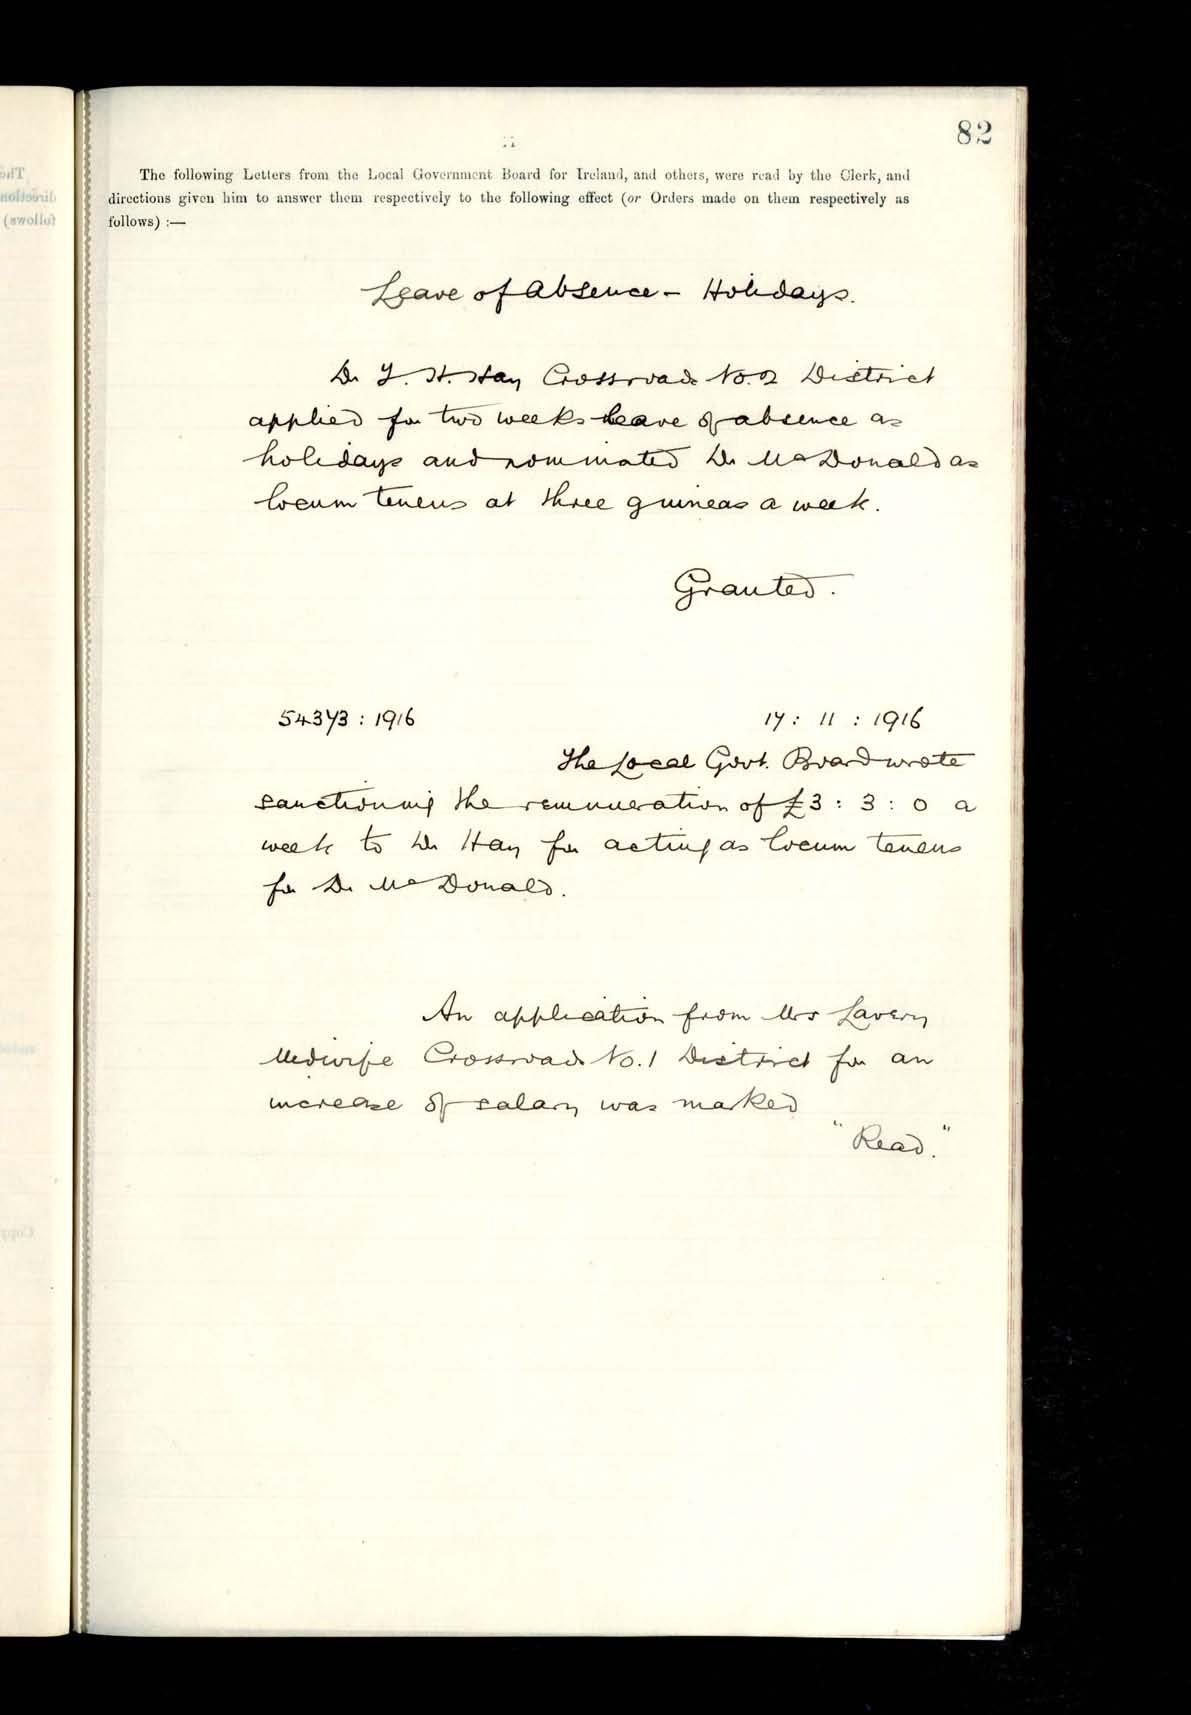 82
The following Letters from the Local Government Board for Ireland, and others, were read by the Clerk, and
directions given him to answer them respectively to the following effect (or Orders made on them respectively as
follows) :—
Leave of Absence - Holidays.
Dr H. Hay Crossroads No. 2 District
applied for two weeks leave of absence as
holidays and nominated Dr McDonald as
locum tenens at three guineas a week.
Granted.
54373 : 1916 17 : 11 : 1916
The Local Govt. Board wrote
sanctioning the remuneration of £3 : 3 : 0 a
week to Dr Hay for acting as locum tenens
for Dr McDonald.
An application from Mrs Lavery
Midwife Crossroads No. 1 District for an
increase of salary was marked
"Read."